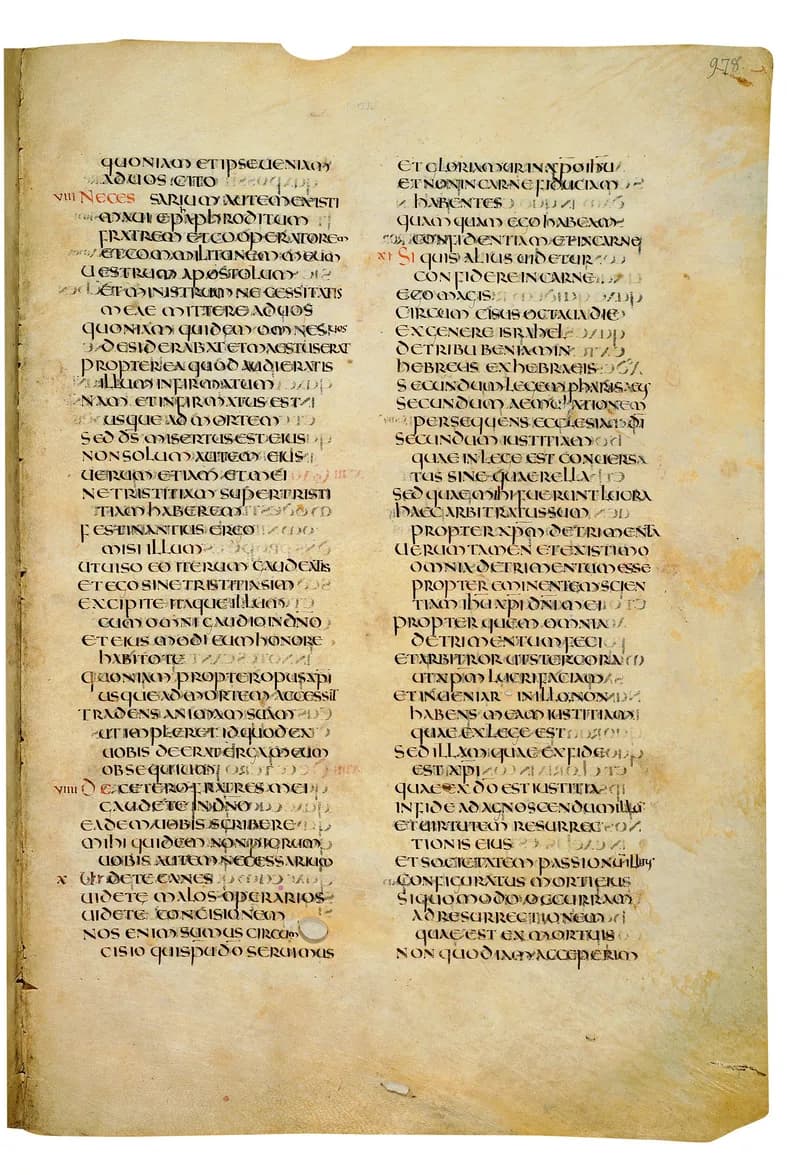 978
QUONIAM ET IPSE UENIAM
AD UOS CITO
VIII NECES SARIUM AUTEM EXISTI
MAUI EPAPHRODITUM
FRATREM ET COOPERATOREM
ET COMMILITONEM MEUM
UESTRUM APOSTOLUM
ET MINISTRUM NECESSITATIS
MEAE MITTERE AD UOS
QUONIAM QUIDEM OMNES UOS
DESIDERABAT ET MAESTUS ERAT
PROPTEREA QUOD AUDIERATIS
ILLUM INFIRMATUM
NAM ET INFIRMATUS EST
USQUE AD MORTEM
SED DS MISERTUS EST EIUS
NON SOLUM AUTEM EIUS
UERUM ETIAM ET MEI
NE TRISTITIAM SUPER TRISTI
TIAM HABEREM
FESTINANTIUS ERGO
MISI ILLUM
UT UISO EO ITERUM GAUDEATIS
ET EGO SINE TRISTITIA SIM
EXCIPITE ITAQUE ILLUM
CUM OMNI GAUDIO IN DNO
ET EIUSMODI CUM HONORE
HABITOTE
QUONIAM PROPTER OPUS XPI
USQUE AD MORTEM ACCESSIT
TRADENS ANIMAM SUAM
UT IMPLERET ID QUOD EX
UOBIS DEERAT ERGA MEUM
OBSEQUIUM
VIIII DE CETERO FRATRES MEI
GAUDETE IN DNO
EADEM UOBIS SCRIBERE
MIHI QUIDEM NON PIGRUM
UOBIS AUTEM NECESSARIUM
X UIDETE CANES
UIDETE MALOS OPERARIOS
UIDETE CONCISIONEM
NOS ENIM SUMUS CIRCUM
CISIO QUI SPU DO SERUIMUS
ET GLORIAMUR IN XPO IHU
ET NON IN CARNE FIDUCIAM
HABENTES
QUAMQUAM EGO HABEAM
CONFIDENTIAM ET IN CARNE
XI SI QUIS ALIUS UIDETUR
CONFIDERE IN CARNE
EGO MAGIS
CIRCUMCISUS OCTAUA DIE
EX GENERE ISRAHEL
DE TRIBU BENIAMIN
HEBREUS EX HEBRAEIS
SECUNDUM LEGEM PHARISAEUS
SECUNDUM AEMULATIONEM
PERSEQUENS ECCLESIAM DI
SECUNDUM IUSTITIAM
QUAE IN LEGE EST CONUERSA
TUS SINE QUAERELLA
SED QUAE MIHI FUERUNT LUCRA
HAEC ARBITRATUS SUM
PROPTER XPM DETRIMENTA
UERUMTAMEN ET EXISTIMO
OMNIA DETRIMENTUM ESSE
PROPTER EMINENTEM SCIEN
TIAM IHU XPI DNI MEI
PROPTER QUEM OMNIA
DETRIMENTUM FECI
ET ARBITROR UT STERCORA
UT XPM LUCRI FACIAM
ET INUENIAR IN ILLO NON
HABENS MEAM IUSTITIAM
QUAE EX LEGE EST
SED ILLAM QUAE EX FIDE
EST XPI
QUAE EX DO EST IUSTITIA
IN FIDE AD AGNOSCENDUM ILLUM
ET UIRTUTEM RESURREC
TIONIS EIUS
ET SOCIETATEM PASSIONUM ILLIUS
CONFIGURATUS MORTI EIUS
SI QUO MODO OCCURRAM
AD RESURRECTIONEM
QUAE EST EX MORTUIS
NON QUOD IAM ACCEPERIM